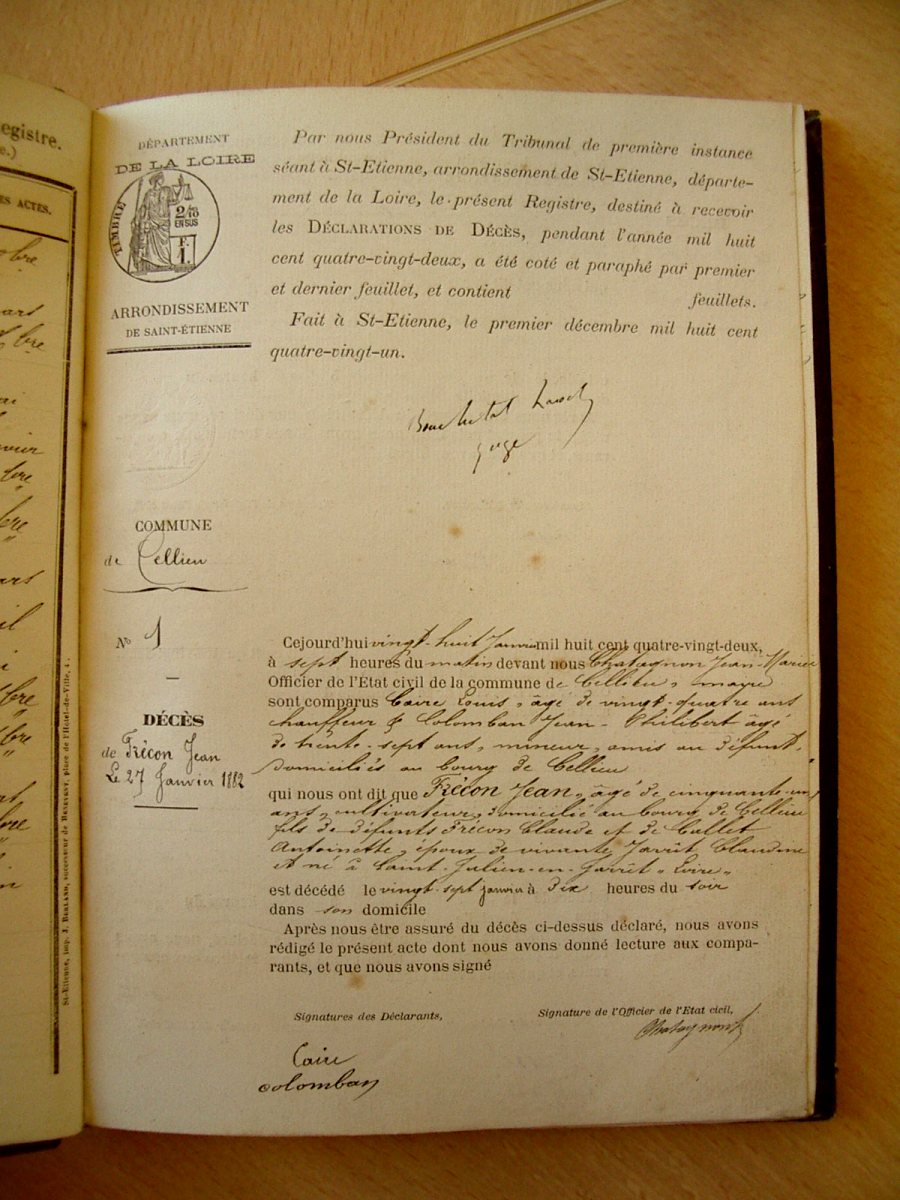 egistre.
e.)
ES ACTES.
DÉPARTEMENT
DE LA LOIRE
TIMBRE
2/10
EN SUS
F.
1.
ARRONDISSEMENT
DE SAINT-ÉTIENNE
Par nous Président du Tribunal de première instance
séant à St-Etienne, arrondissement de St-Etienne, départe-
ment de la Loire, le présent Registre, destiné à recevoir
les DÉCLARATIONS DE DÉCÈS, pendant l'année mil huit
cent quatre-vingt-deux, a été coté et paraphé par premier
et dernier feuillet, et contient feuillets.
Fait à St-Etienne, le premier décembre mil huit cent
quatre-vingt-un.
juge
COMMUNE
de Cellieu
No 1
DÉCÈS
de Frécon Jean
Le 27 Janvier 1882
St-Etienne, imp. J. BERLAND, successeur de BENEVENT, place de l'Hôtel-de-Ville, 4.
Cejourd'hui vingt-huit Janvier mil huit cent quatre-vingt-deux,
à sept heures du matin devant nous Chatagnon Jean-Marie
Officier de l'Etat civil de la commune de Cellieu, mayre
sont comparus Caire Louis, âgé de vingt-quatre ans
chauffeur & Colomban Jean-Philibert âgé
de trente-sept ans, mineur, amis au défunt,
domiciliés au bourg de Cellieu
qui nous ont dit que Frécon Jean, âgé de cinquante-un
ans, cultivateur, domicilié au bourg de Cellieu
fils de défunts Frécon Claude et de Collet
Antoinette, époux de vivante Jarrêt Claudine
et né à Saint-Julien-en-Jarrêt "Loire"
est décédé le vingt-sept janvier à dix heures du soir
dans son domicile
Après nous être assuré du décès ci-dessus déclaré, nous avons
rédigé le présent acte dont nous avons donné lecture aux compa-
rants, et que nous avons signé
Signatures des Déclarants,
Signature de l'Officier de l'Etat civil,
Chatagnon
Caire
Colomban